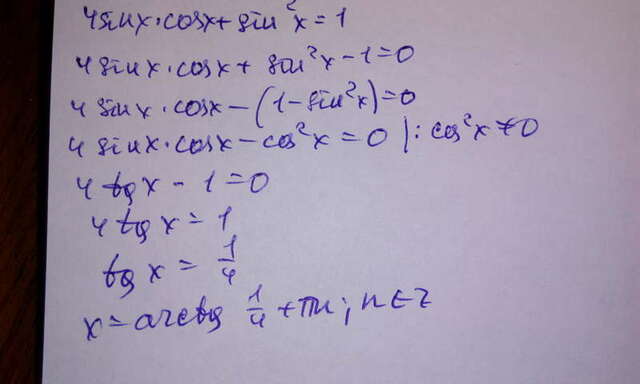 4sinx·cosx+sin²x=1
4sinx·cosx+sin²x-1=0
4sinx·cosx-(1-sin²x)=0
4sinx·cosx-cos²x=0 |:cos²x≠0
4tgx-1=0
4tgx=1
tgx=1/4
x=arctg 1/4+πn; n∈Z